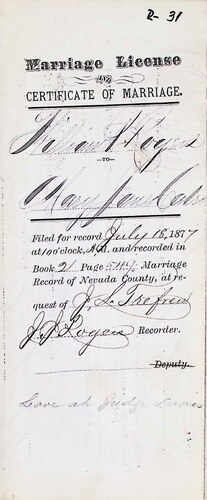 R-31
Marriage License
AND
CERTIFICATE OF MARRIAGE.
William Rogers
—TO—
Mary Jane
Filed for record July 15, 1877
at 10 o'clock, A.M. and recorded in
Book 2 Page Marriage
Record of Nevada County, at re-
quest of J. L. Trefren
Recorder.
Deputy.
Leave at Judge